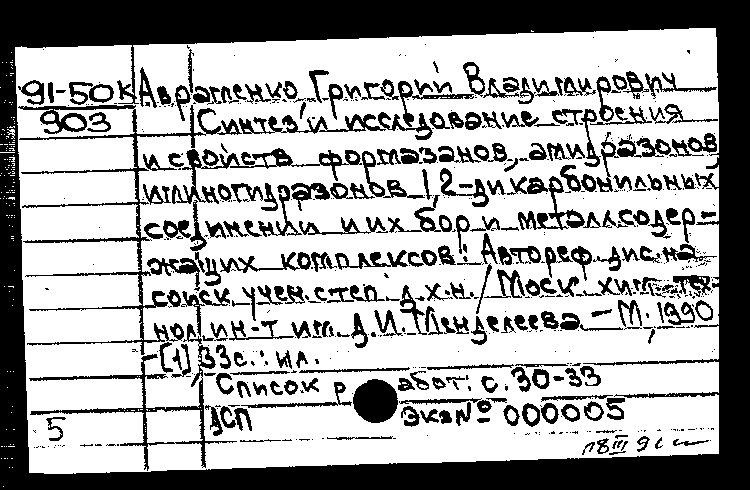 91-50К Авраменко Григорий Владимирович
903 Синтез и исследование строения
и свойств формазанов, амидразонов,
иминогидразонов 1,2-дикарбонильных
соединений и их бор и металлсодер-
жащих комплексов: Автореф. дис. на
соиск. учен. степ. д.х.н. / Моск. хим.-тех-
нол. ин-т им. Д.И. Менделеева. - М., 1990.
-[1] 33с.: ил.
Список работ: с. 30-33
5 ДСП Экз № 000005
18 III 91